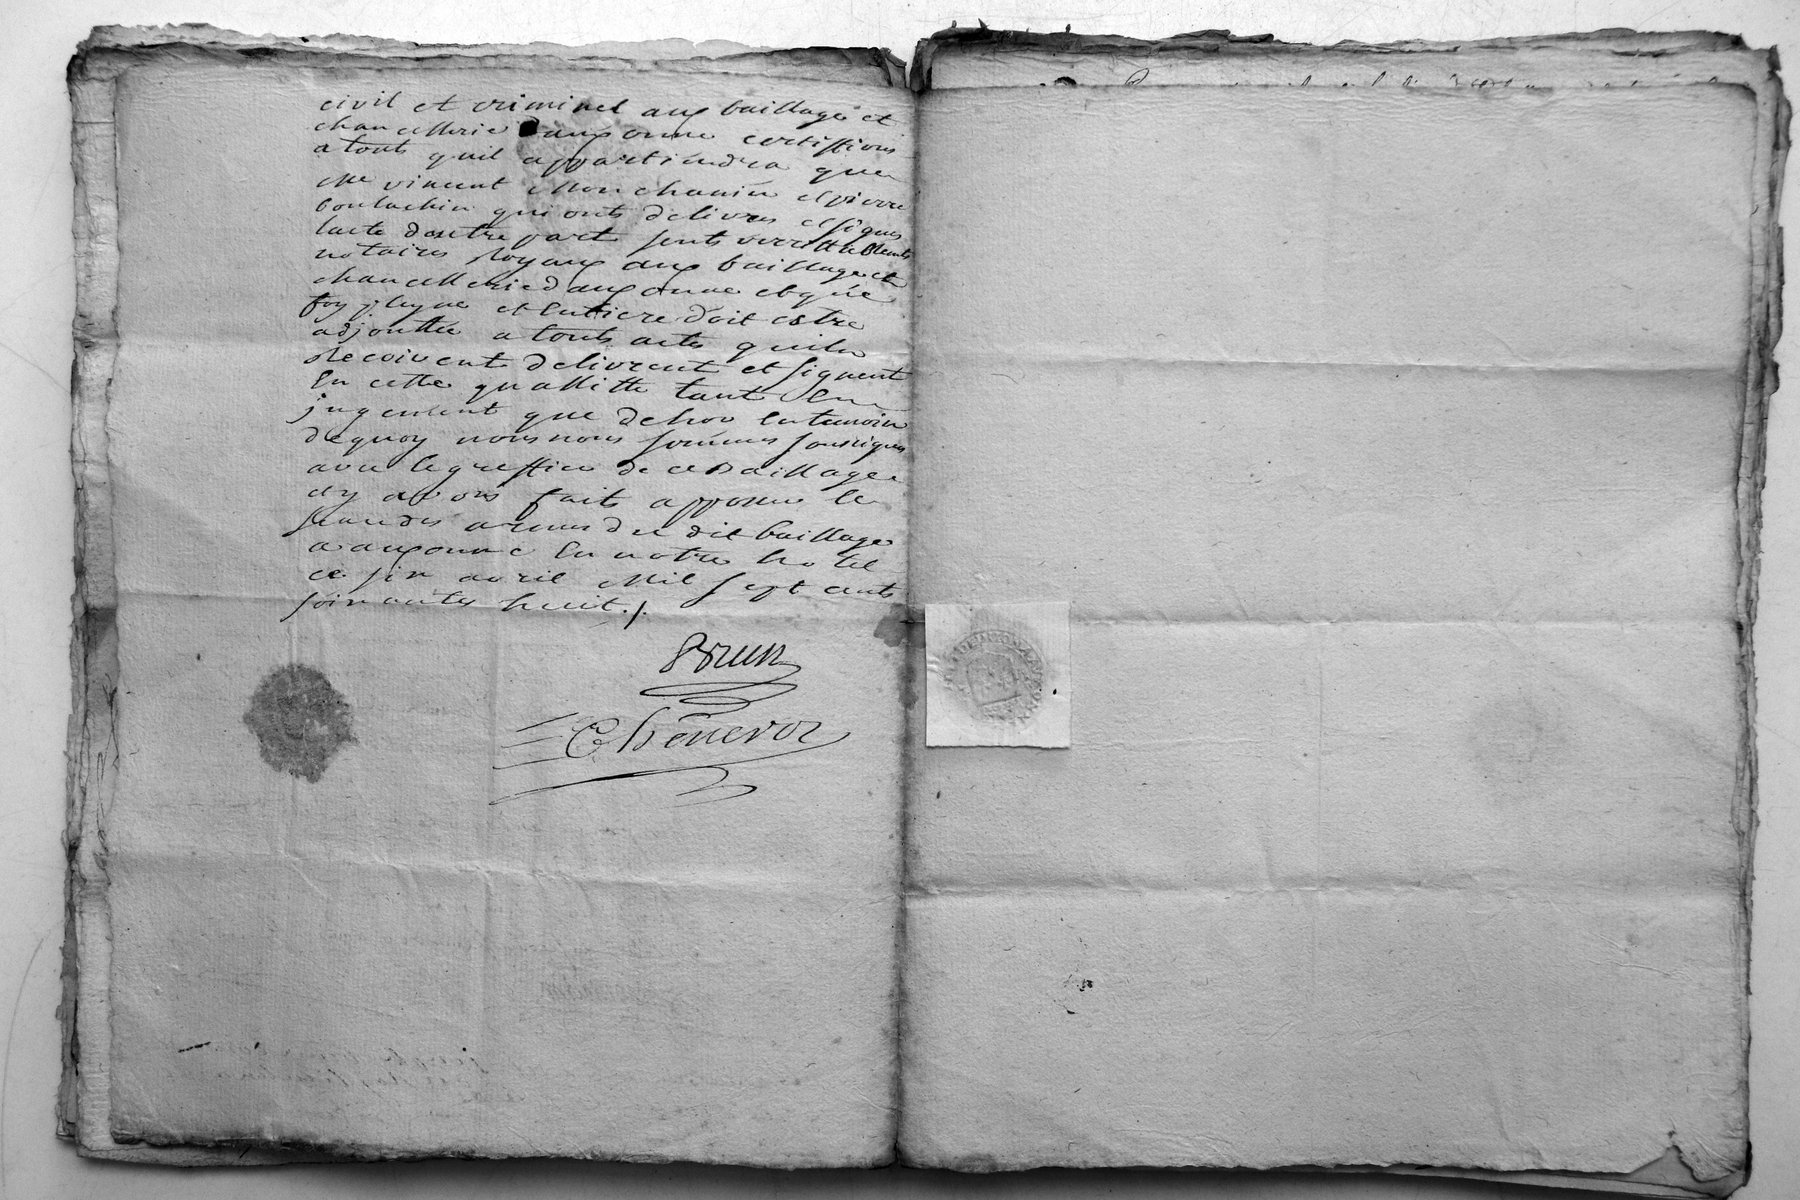 civil et criminel aux baillage et
chancellerie dauxonne certiffions
a touts quil appartiendra que
Me vincent Monchanin et pierre
boulachin qui onts delivres et signes
lacte dautre part sents verittablements
notaires Royaux aux baillage et
chancellerie dauxonne et que
foy pleyne et entiere doit estre
adjouttée a touts acts quils
Recoivent delivrent et signent
En cette quallitte tant En
jugement que dehor En temoin
dequoy nous nous sommes soussignes
avec le greffier de ce Baillage
et y avons fait apposer le
sceau des armes du dit baillage
a auxonne En notre hotel
ce six avril Mil sept cents
soixantes huit ./.
Chênevoz